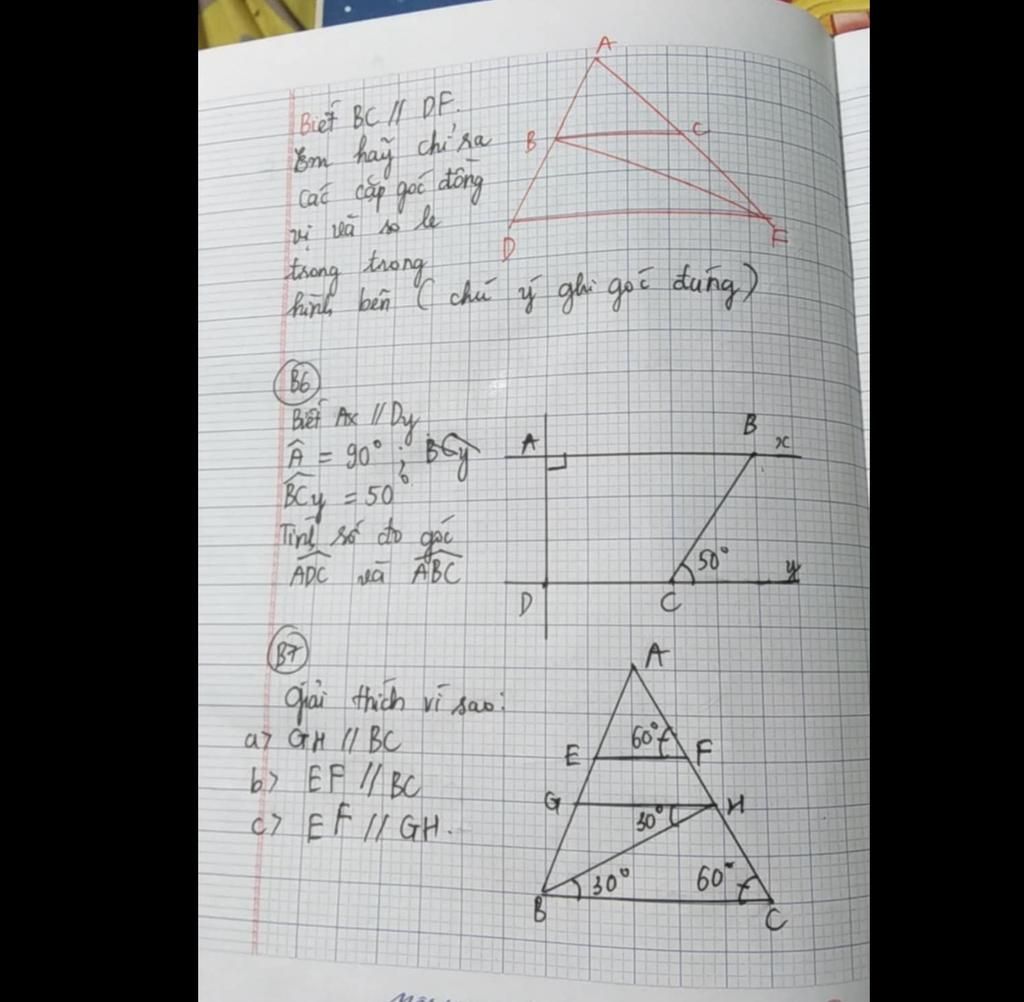 A
Biết BC // DF.
Em hãy chỉ ra
B
C
các cặp góc đồng
vị và so le
D
F
trong trong
hình bên ( chú ý ghi góc đúng )
B6
Biết Ax // Dy
A
B
x
Â = 90° ;
BCy = 50°
Tính số đo góc
50°
y
ADC và ABC
D
C
B7
A
Giải thích vì sao:
a> GH // BC
60°
E
F
b> EF // BC
G
H
c> EF // GH.
30°
30°
60°
B
C